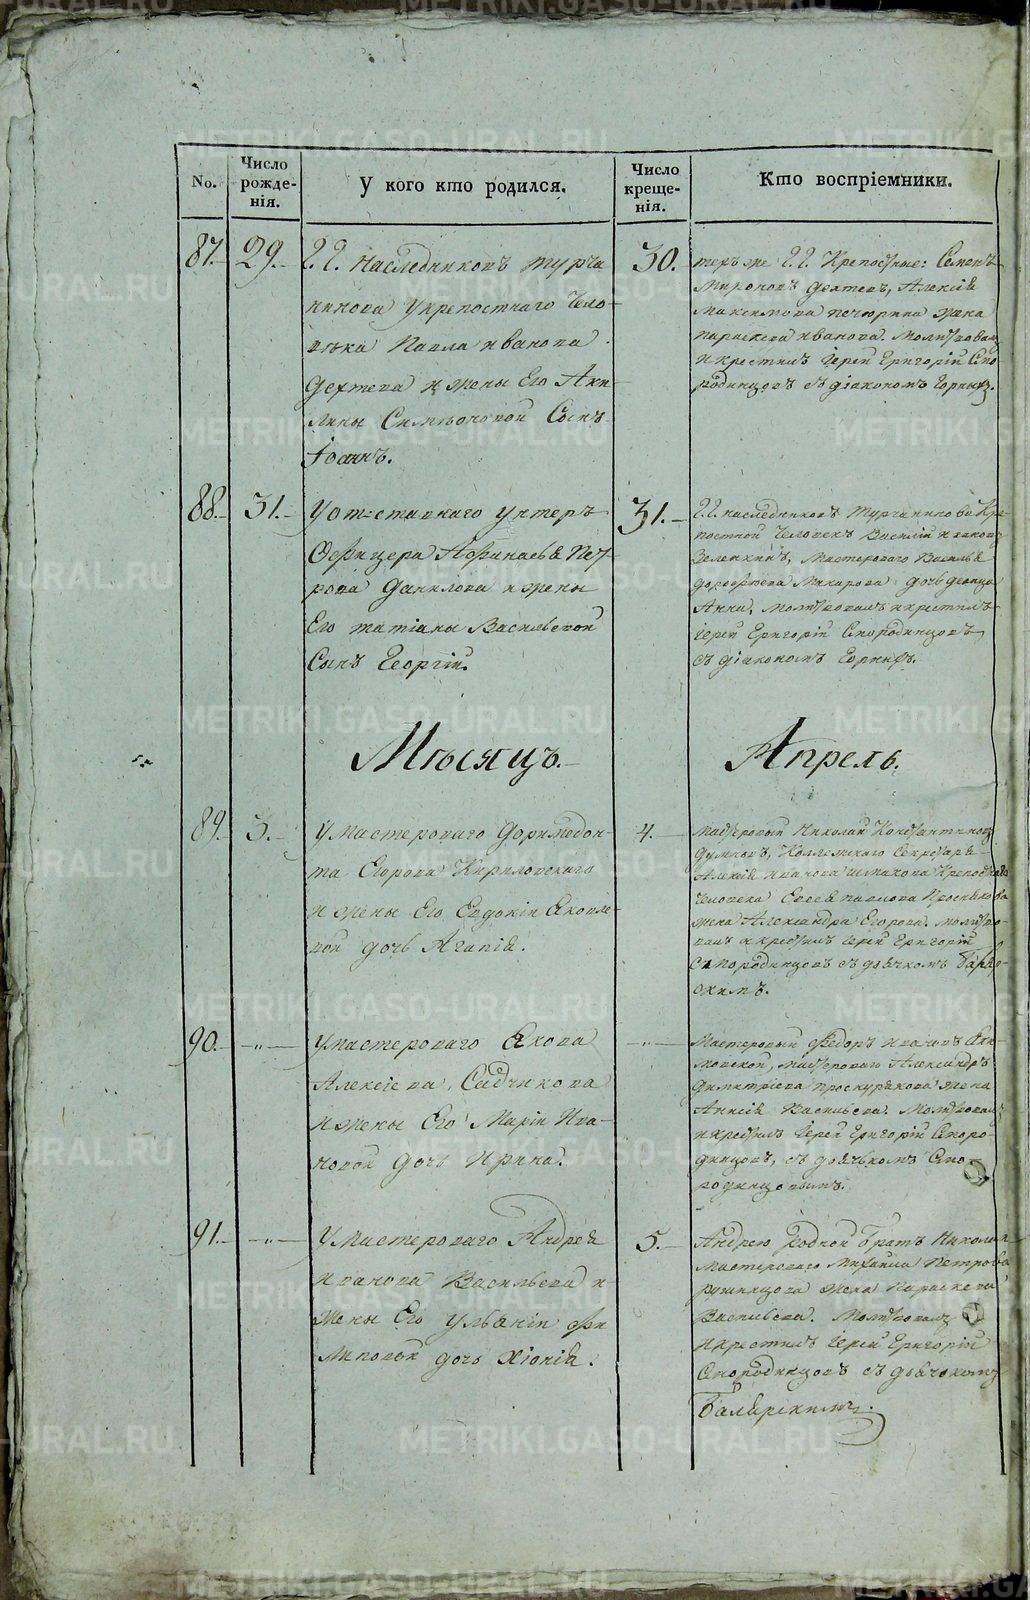 No.
Число рожде-
нія.
У кого кто родился.
Число
креще-
нія.
Кто воспріемники.
87.
29.
Г. Г. наслѣдниковъ турча
нинова Укрепостнаго Чело-
вѣка Павла иванова
Дехтева и жены Его Аки-
лины Симеоновой Сынъ
Іоаннъ.
30.
техъ же Г. Г. Крепостные: Семенъ
Мироновъ дехтевъ, Алексія
Максимова жена
параскева иванова. Молитвовалъ
и крестилъ Іерей Григорій Смо-
родинцовъ съ діакономъ Горныхъ.
88.
31.
У отставнаго унтеръ
Офицера Афанасья пет-
рова Данилова и жены
Его татіаны Васильевой
Сынъ Георгій.
31.
Г. Г. наслѣдниковъ Турчанинова Кре-
постной Человекъ Василій ивановъ
Зеленкинъ, Мастероваго Василья
дорофеева Макарова дочь девица
Анна, молитвовалъ и крестилъ
Іерей Григорій Смородинцовъ
съ діакономъ Горныхъ.
Мѣсяцъ
Апрель.
89.
3.
У мастероваго Доримедон-
та Егорова Кириловскаго
и жены Его Евдокіи Яковле-
вой дочь Агапія.
4.
мастеровый Николай Константиновъ
Коллежскаго Секретаря
Алексія иванова Крепостнаго
человека Евсея павлова
жена Александра Егорова. молитво-
валъ и крестилъ Іерей Григорій
Смородинцовъ съ дьячкомъ
90.
У мастероваго Якова
Алексіева Садчикова
и жены Его Маріи Ива-
новой дочь Ирина.
Мастеровый Федоръ ивановъ
мастероваго Александръ
Димитріева проскурякова жена
Анисія Васильева. Молитвовалъ
и крестилъ Іерей Григорій Сморо-
динцовъ, съ дьячкомъ Смо-
родинцовымъ.
91.
У мастероваго Андрея
иванова Васильева и
жены Его Ульяніи Фи-
липовой дочь Хіонія.
5.
Андрею родной братъ Николай
Мастероваго Михаила Петрова
жена Параскева
Васильева. Молитвовалъ
и крестилъ Іерей Григорій
Смородинцовъ съ дьячкомъ
METRIKI.GASO-URAL.RU